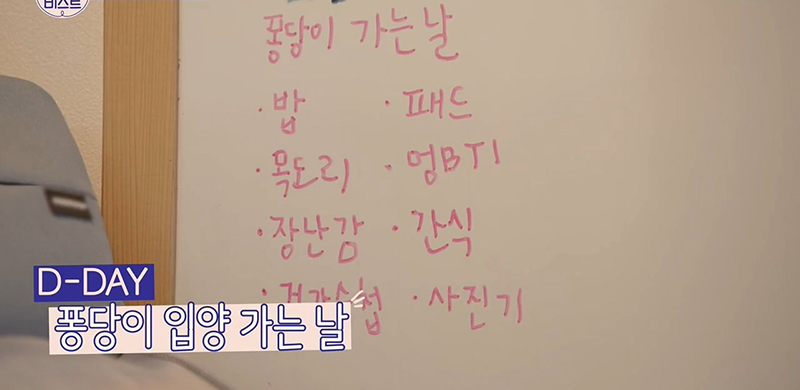 비스트
퐁당이 가는 날
· 밥 · 패드
· 목도리 · 멍BTI
· 장난감 · 간식
· 건강수첩 · 사진기
D-DAY
퐁당이 입양 가는 날